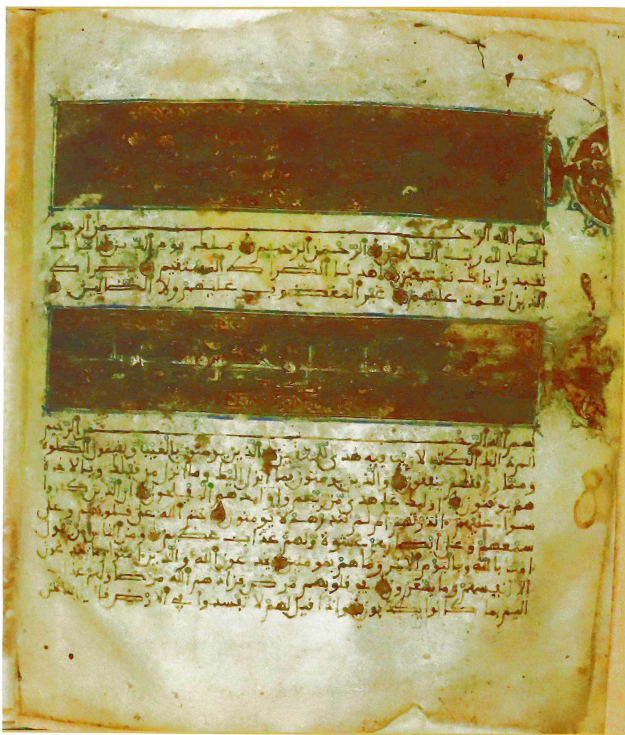 بسم الله الرحمن الرحيم
الحمد لله رب العلمين الرحمن الرحيم ملك يوم الدين اياك
نعبد واياك نستعين اهدنا الصراط المستقيم صراط
الذين انعمت عليهم غير المغضوب عليهم ولا الضالين
بسم الله الرحمن الرحيم
الم ذلك الكتب لا ريب فيه هدى للمتقين الذين يومنون بالغيب ويقيمون الصلوة
ومما رزقنهم ينفقون والذين يومنون بما انزل اليك وما انزل من قبلك وبالاخرة
هم يوقنون اوليك على هدى من ربهم واوليك هم المفلحون ان الذين كفروا
سواء عليهم ءانذرتهم ام لم تنذرهم لا يومنون ختم الله على قلوبهم وعلى
سمعهم وعلى ابصرهم غشوة ولهم عذاب عظيم ومن الناس من يقول
امنا بالله وباليوم الاخر وما هم بمومنين يخدعون الله والذين امنوا وما يخدعون
الا انفسهم وما يشعرون في قلوبهم مرض فزادهم الله مرضا ولهم عذاب
اليم بما كانوا يكذبون واذا قيل لهم لا تفسدوا في الارض قالوا انما نحن